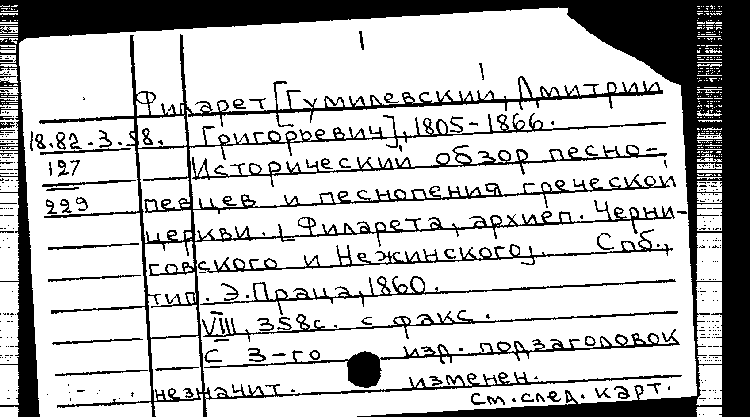 Филарет [Гумилевский, Дмитрий
18.82.3.58. Григорьевич], 1805-1866.
127 Исторический обзор песно-
229 певцев и песнопения греческой
церкви. [Филарета, архиеп. Черни-
говского и Нежинского]. Спб.,
тип. Э.Праца, 1860.
VIII, 358с. с факс.
С 3-го изд. подзаголовок
незначит. изменен.
См. след. карт.